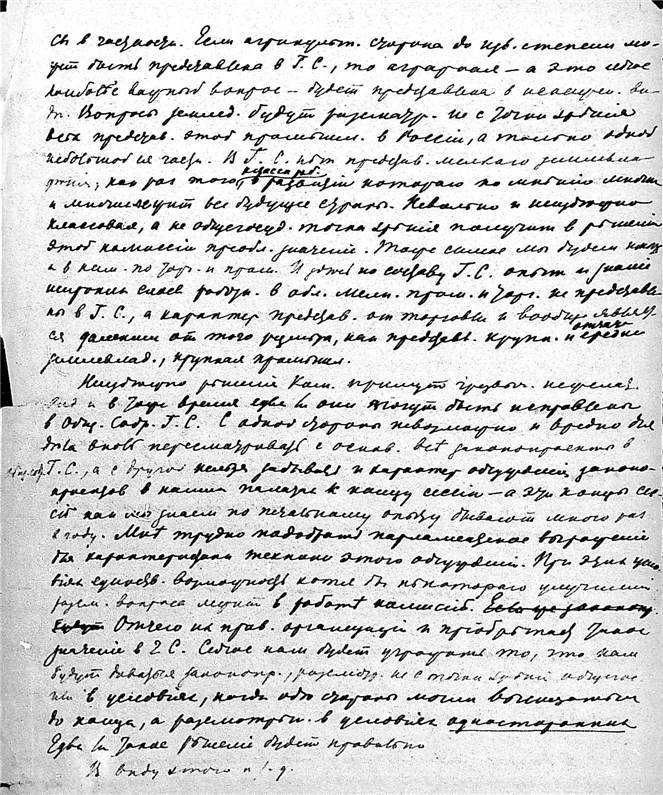 сь в частности. Если агрикульт. сторона до изв. степени мо-
жет быть представлена в Г. С., то аграрная – а это сейчас
наиболѣе важный вопрос – будет представлена в неполном ви-
дѣ. Вопросы землед. будут разсматр. не с точки зрѣнія
всѣх представ. этой промышлен. в Россіи, а только одной
небольшой ея части. В Г. С. нѣт представ. мелкаго землевла-
дѣнія, как раз того класса, в развитіи котораго по мнѣнію многих
и многих лежит все будущее страны. Невольно и неизбѣжно
классовая, а не общегосуд. точка зрѣнія получит в рѣшеніи
этой комиссіи преобл. значеніе. Тоже самое мы будем имѣть
и в ком. по торг. и пром. И здѣсь по составу Г. С. опыт и знаніе
широких слоев работы в обл. мелк. пром. и торг. не представле-
ны в Г. С., а характер представ. от торговли и вообще
далеким от того результ., как представ. крупн. и отчасти средня
землевлад., крупная промышл.
Неизбѣжно рѣшенія Ком. примут нежелат.
вид и в тоже время едва ли они могут быть исправлены
в Общ. Собр. Г. С. С одной стороны невозможно и вредно для
дѣла вновь пересматривать с основ. всѣ законопроекты в
Общ. соб. Г. С., а с другой нельзя забывать и характер обсужденія законо-
проектов в наших палатах к концу сессіи – а эти концы сес-
сіи как мы знаем по печальному опыту бывают много раз
в году. Мнѣ трудно подобрать парламентское выраженіе
для характеристики техники этого обсужденія. При этих усло-
віях единств. возможность хотя бы нѣкотораго улучшенія
разсм. вопроса лежит в работѣ комиссій.
Отчего их прав. организація и пріобрѣтает такое
значеніе в Г. С. Сейчас нам будет угрожать то, что нам
будут даваться законопр., разсмотр. не с точки зрѣнія общегос.
не в условіях, когда обѣ стороны могли высказаться
до конца, а разсмотрѣн. в условіях односторонних
Едва ли такое рѣшеніе будет правильно
В виду этого и т. д.